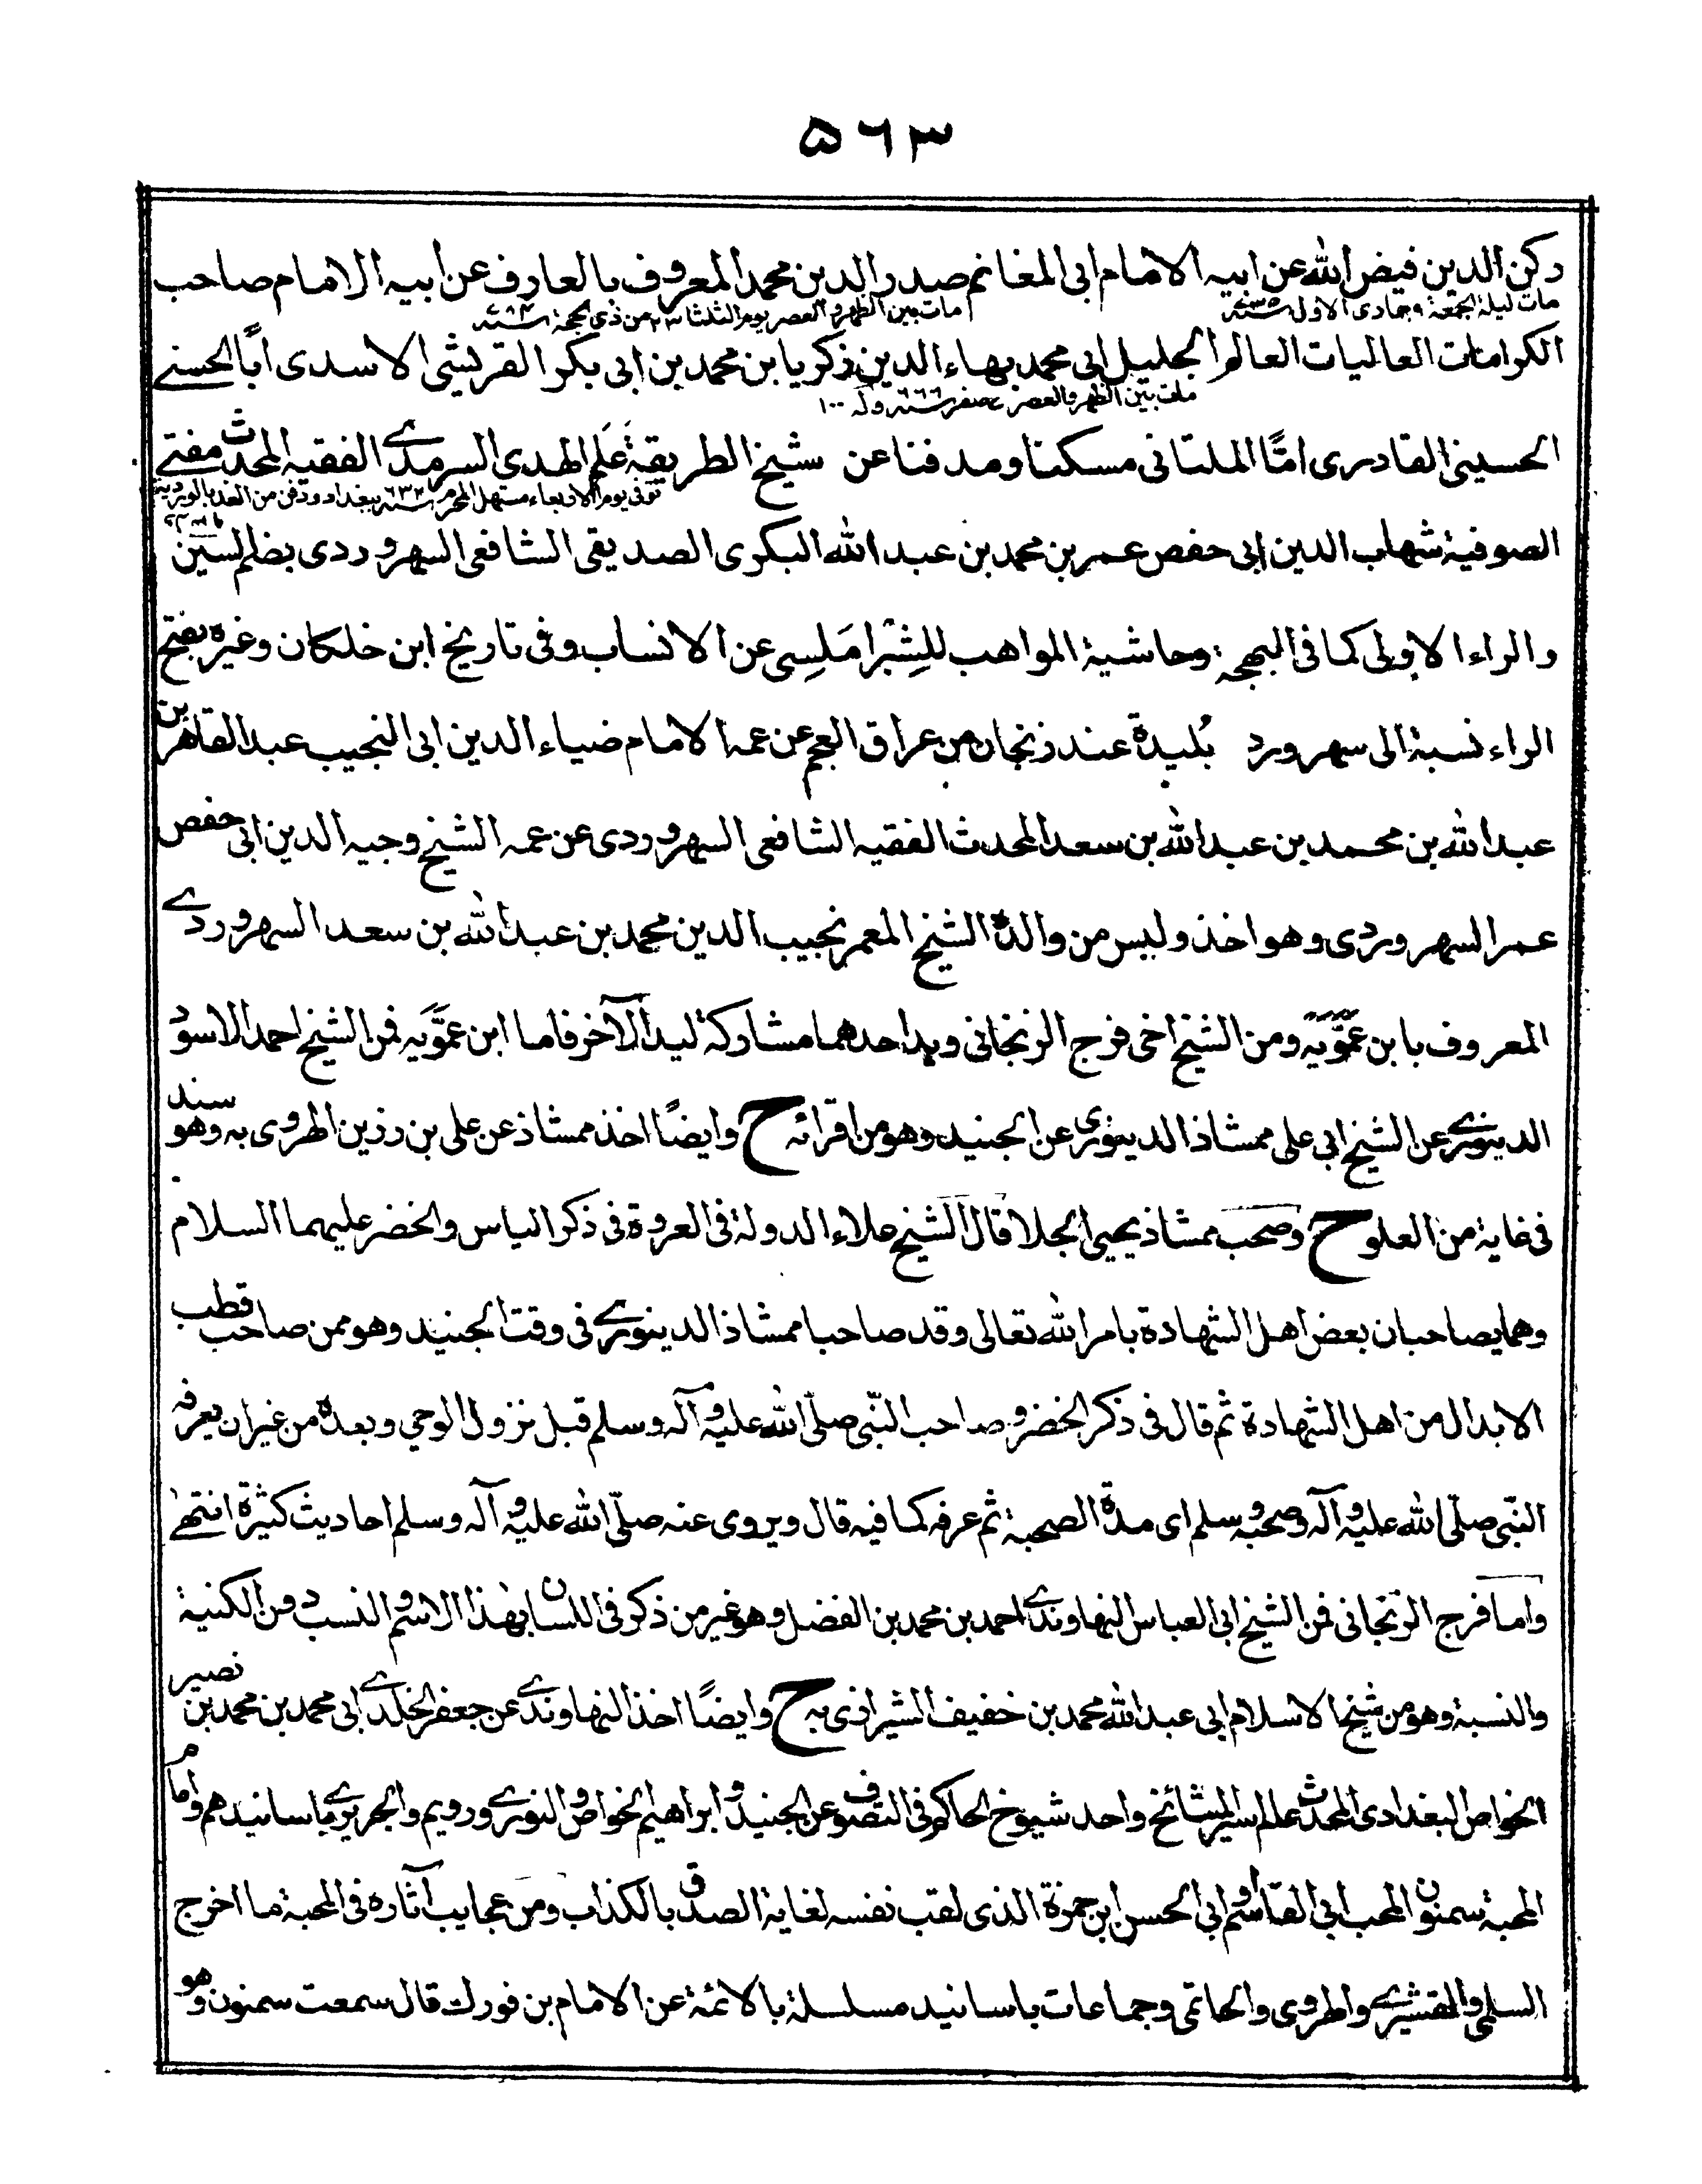 ٥٦٣
ركن الدين فيض الله عن ابيه الامام ابى المغانم صدر الدين محمد المعروف بالعارف عن ابيه الامام صاحب
مات ليلة الجمعة ٩ جمادى الاولى سنة ٧٣٥ مات بين الظهر والعصر يوم الثلثا ٢٣ من ذي الحجة سنة ٦٨٤
الكرامات العاليات العالم الجليل ابى محمد بهاء الدين زكريا بن محمد بن ابى بكر القريشى الاسدى اباً الحسنے
مات بين الظهر والعصر ٧ صفر سنة ٦٦٦ وله ١٠٠
الحسينى القادرى امّا الملتانى مسكنا ومدفنا عن شيخ الطريقة عَلَم الهدى السرمدے الفقيه المحدث مفتے
توفى يوم الاربعاء مستهل المحرم سنة ٦٣٢ ببغداد ودفن من الغد بالوردية
الصوفية شهاب الدين ابى حفص عمر بن محمد بن عبد الله البكرى الصديقى الشافعى السهروردى بضم السين
والراء الاولى كما فى البهجة وحاشية المواهب للشِبْرامَلِسِى عن الانساب وفى تاريخ ابن خلكان وغيره بفتح
الراء نسبة الى سهرورد بُليدة عند زنجان من عراق العجم عن عمه الامام ضياء الدين ابى النجيب عبد القاهر بن
عبد الله بن محمد بن عبد الله بن سعد المحدث الفقيه الشافعى السهروردى عن عمه الشيخ وجيه الدين ابى حفص
عمر السهروردى وهو اخذ ولبس من والده الشيخ المعمر نجيب الدين محمد بن عبد الله بن سعد السهروردے
المعروف بابن عمّويَه ومن الشيخ اخى فرج الزنجانى ويد احدهما مشاركة ليد الآخر فاما ابن عمّويَه فمن الشيخ احمد الاسود
الدينورے عن الشيخ ابى على ممشاذ الدينورى عن الجنيد وهو من اقرانه ح وايضًا اخذ ممشاذ عن على بن رزين الهروى به وهو سند
فى غاية من العلو ح وصحب ممشاذ يحيى الجلا قال الشيخ علاء الدولة فى العروة فى ذكر الياس والخضر عليهما السلام
وهما يصاحبان بعض اهل الشهادة بامر الله تعالى وقد صاحبا ممشاذ الدينورے فى وقت الجنيد وهو ممن صاحب قطب
الابدال من اهل الشهادة ثم قال فى ذكر الخضر وصاحب النّبى صلّى الله عليه وآله وسلم قبل نزول الوحي وبعده من غير ان يعرفه
النّبى صلّى الله عليه وآله وصحبه وسلم اى مدة الصحبة ثم عرفه كما فيه قال ويروى عنه صلّى الله عليه وآله وسلم احاديث كثيرة انتهىٰ
واما فرج الزنجانى فمن الشيخ ابى العباس النهاوندے احمد بن محمد بن الفضل وهو غير من ذكر فى اللسان بهٰذا الاسم والنسب دون الكنية
والنسبة وهو من شيخ الاسلام ابى عبد الله محمد بن خفيف الشيرازى به ح وايضًا اخذ النهاوندے عن جعفر الخلدے ابى محمد بن محمد بن نصير
الخواص البغدادى المحدث عالم سير المشائخ واحد شيوخ الحاكم فى التصوف عن الجنيد وابراهيم الخواص والنورے ورويم والجريرے باسانيدهم واما م
المحبة سمنون المحب ابى القاسم او ابى الحسن ابن حمزة الذى لقب نفسه لغاية الصدق بالكذاب ومن عجايب آثاره فى المحبة ما اخرج
السلمى والقشيرے والهروى والحاتمى وجماعات باسانيد مسلسلة بالائمة عن الامام بن فورك قال سمعت سمنون وهو